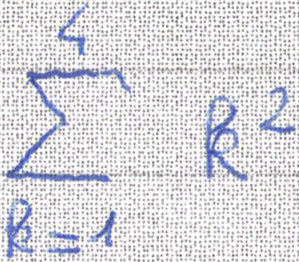 \sum_{k=1}^{4} k^2